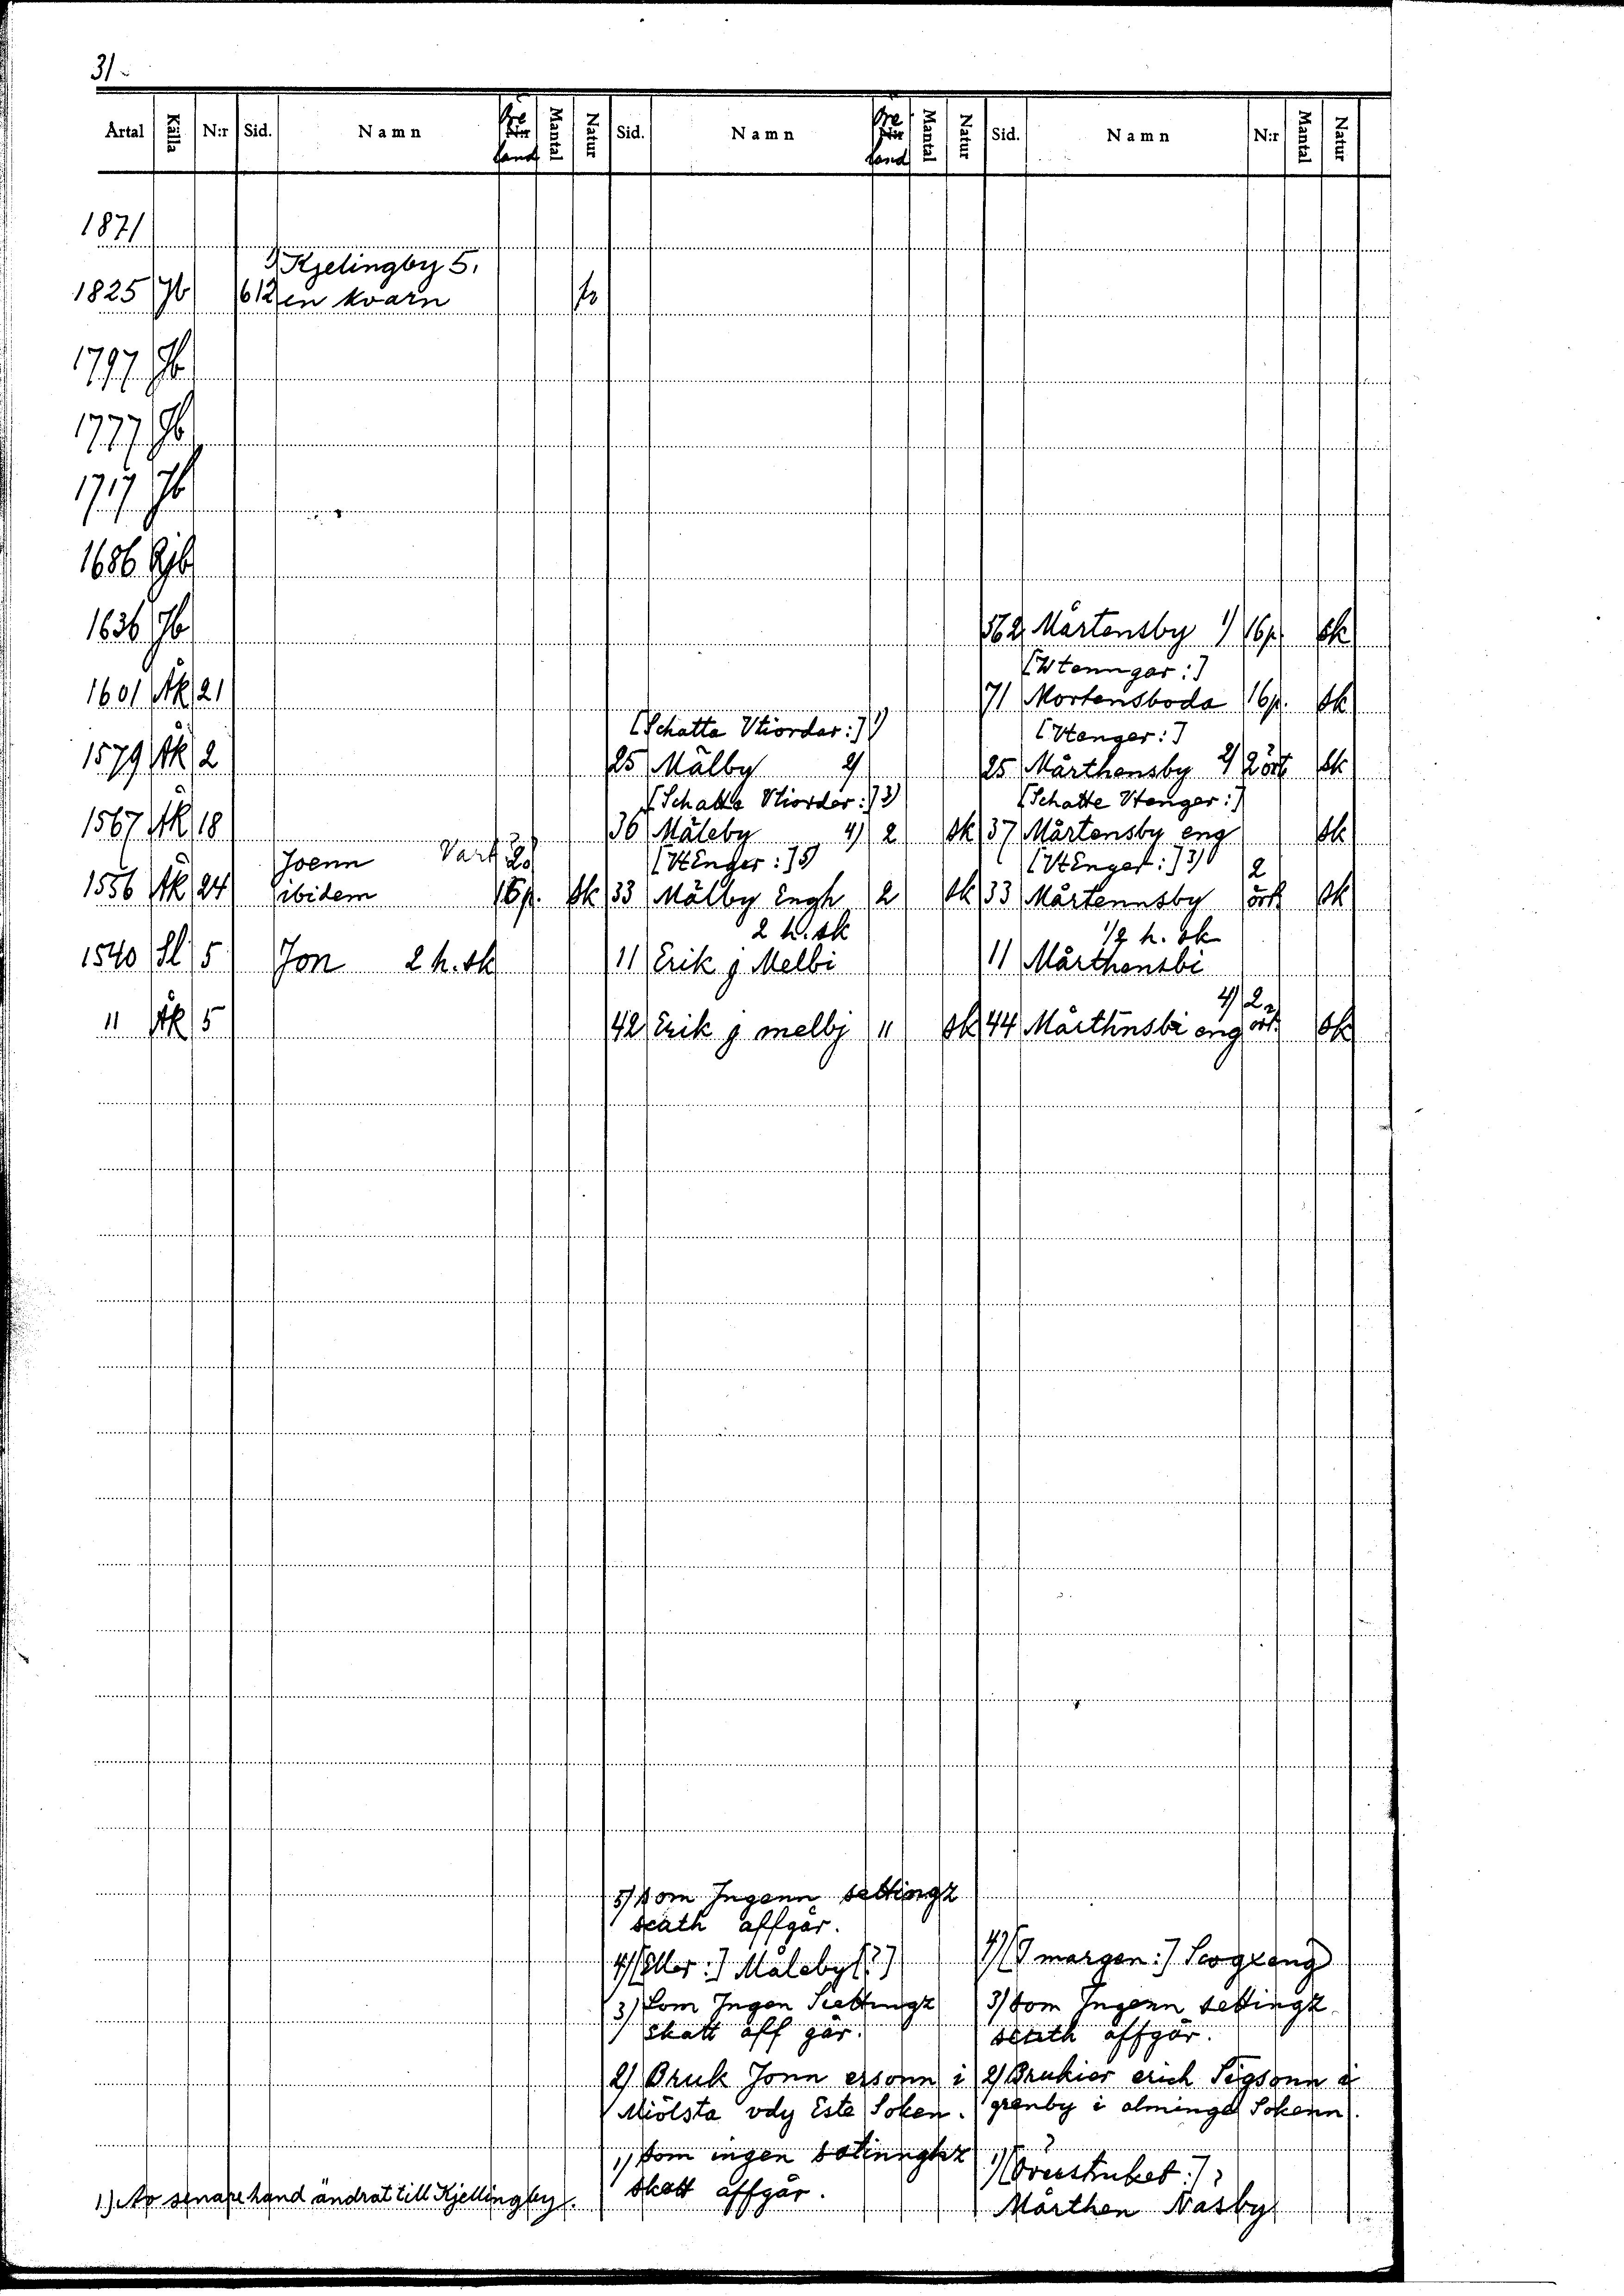 31
Artal Källa N:r Sid. Namn Öre land Mantal Natur Sid. Namn Öre land Mantal Natur Sid. Namn N:r Mantal Natur
1871
1) Kjelingby 5.
1825 Jb 612 en kvarn fr
1797 Jb
1777 Jb
1717 Jb
1686 Rjb
1636 Jb 562 Mårtensby 1) 16p. sk
[Wtenngar:]
1601 Åk 21 71 Mortensboda 16p. sk
[Schatta Vtiordar:] 1) [Vtenger:]
1579 Åk 2 25 Mälby 2) 25 Mårthensby 2) 2 ört sk
[Schatta Vtiordar:] 3) [Schatte Vtenger:]
1567 Åk 18 36 Mäleby 4) 2 sk 37 Mårtensby eng sk
Joenn Vart 20 [VtEnger:] 5) [VtEnger:] 3) 2
1556 Åk 24 ibidem 16p. sk 33 Mälby Engh 2 sk 33 Mårtennsby ört sk
2 h. sk 1/2 h. sk
1540 Sl 5 Jon 2 h. sk 11 Erik j Melbi 11 Mårthensbi
4) 2
" Åk 5 42 Erik j melbj " sk 44 Mårthnsbi eng ört. sk
5) som Ingenn settingz
scath affgår.
4) [Eller:] Måleby [?]
3) Som Ingen Settingz
skatt aff går.
2) Bruk Jonn ersonn i
Miölsta vdy Este Soken.
1) som ingen sätinnghz
skatt affgår.
4) [I margen:] Scogxeng
3) som Ingenn settingz
scath affgår.
2) Brukier erich Sigsonn i
grenby i alminge Sokenn.
1) [Överstruket:]
Mårthen Nasby
1) Av senare hand ändrat till Kjellingby.